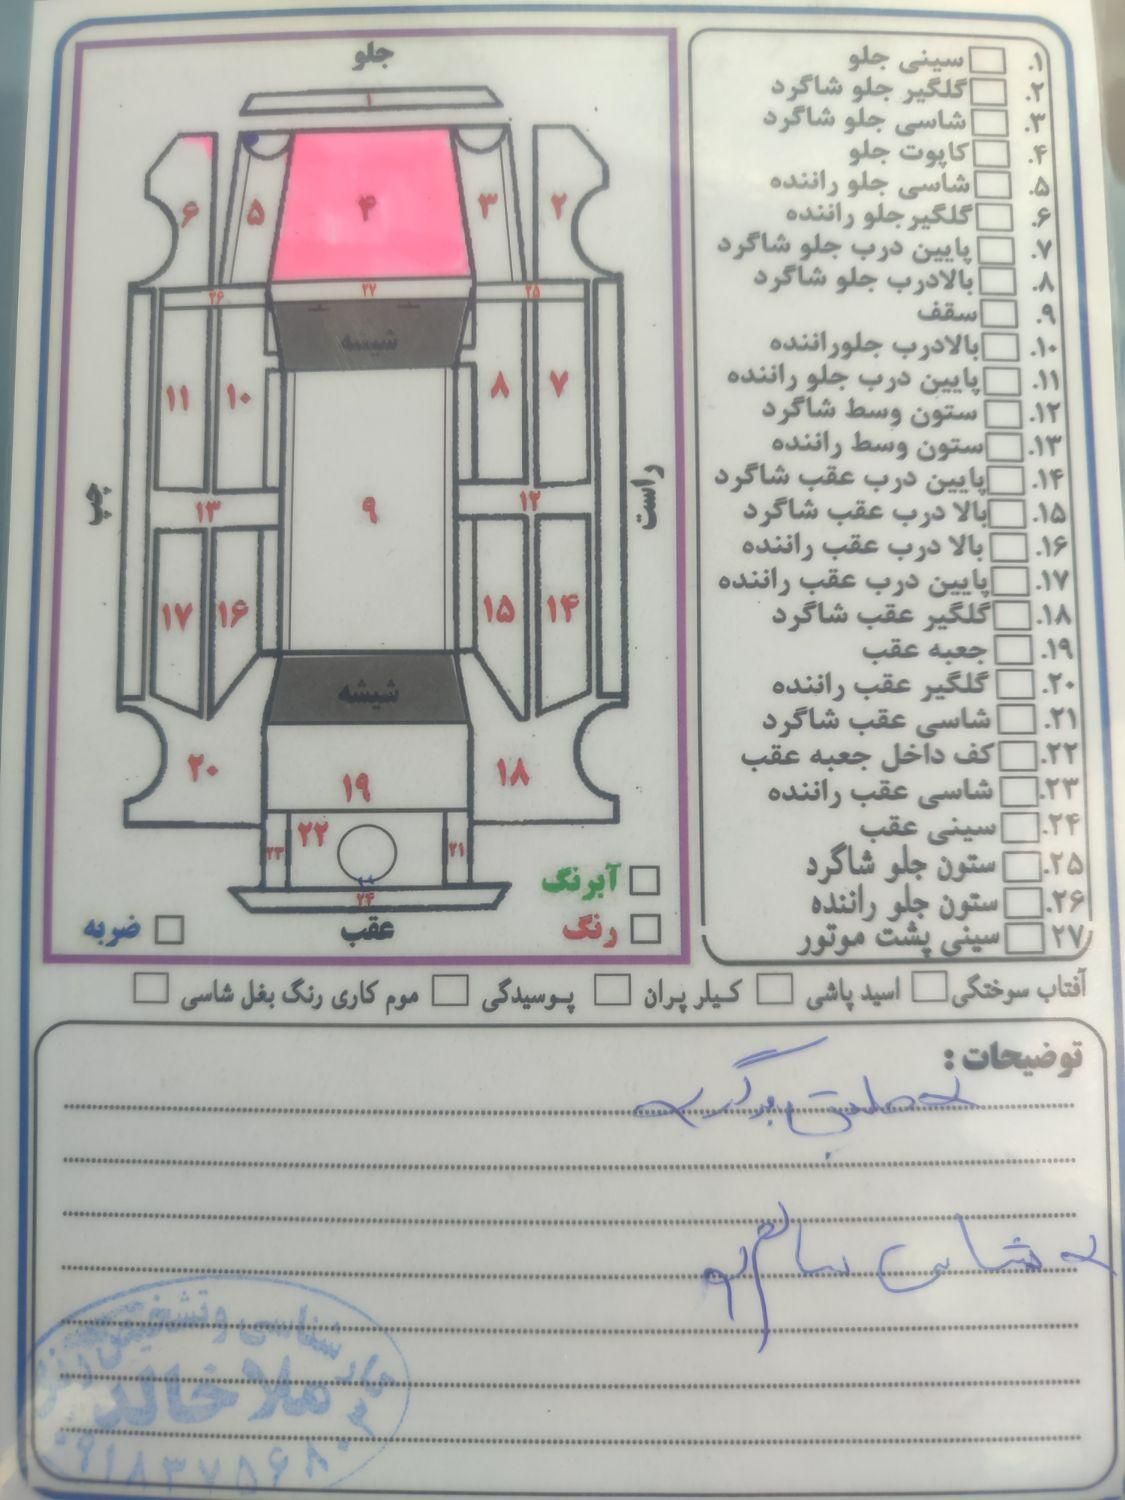 جلو
۱
۶
۵
۴
۳
۲
۲۶
۲۷
۲۵
شیشه
۱۱
۱۰
۸
۷
چپ
راست
۱۳
۹
۱۲
۱۷
۱۶
۱۵
۱۴
شیشه
۲۰
۱۹
۱۸
۲۳
۲۲
۲۱
۲۴
عقب
آبرنگ
رنگ
ضربه
۱. سینی جلو
۲. گلگیر جلو شاگرد
۳. شاسی جلو شاگرد
۴. کاپوت جلو
۵. شاسی جلو راننده
۶. گلگیرجلو راننده
۷. پایین درب جلو شاگرد
۸. بالادرب جلو شاگرد
۹. سقف
۱۰. بالادرب جلوراننده
۱۱. پایین درب جلو راننده
۱۲. ستون وسط شاگرد
۱۳. ستون وسط راننده
۱۴. پایین درب عقب شاگرد
۱۵. بالا درب عقب شاگرد
۱۶. بالا درب عقب راننده
۱۷. پایین درب عقب راننده
۱۸. گلگیر عقب شاگرد
۱۹. جعبه عقب
۲۰. گلگیر عقب راننده
۲۱. شاسی عقب شاگرد
۲۲. کف داخل جعبه عقب
۲۳. شاسی عقب راننده
۲۴. سینی عقب
۲۵. ستون جلو شاگرد
۲۶. ستون جلو راننده
۲۷ سینی پشت موتور
آفتاب سوختگی اسید پاشی کیلر پران پوسیدگی موم کاری رنگ بغل شاسی
توضیحات :
شاسی سالم
کارشناسی و تشخیص رنگ
ملا خالد